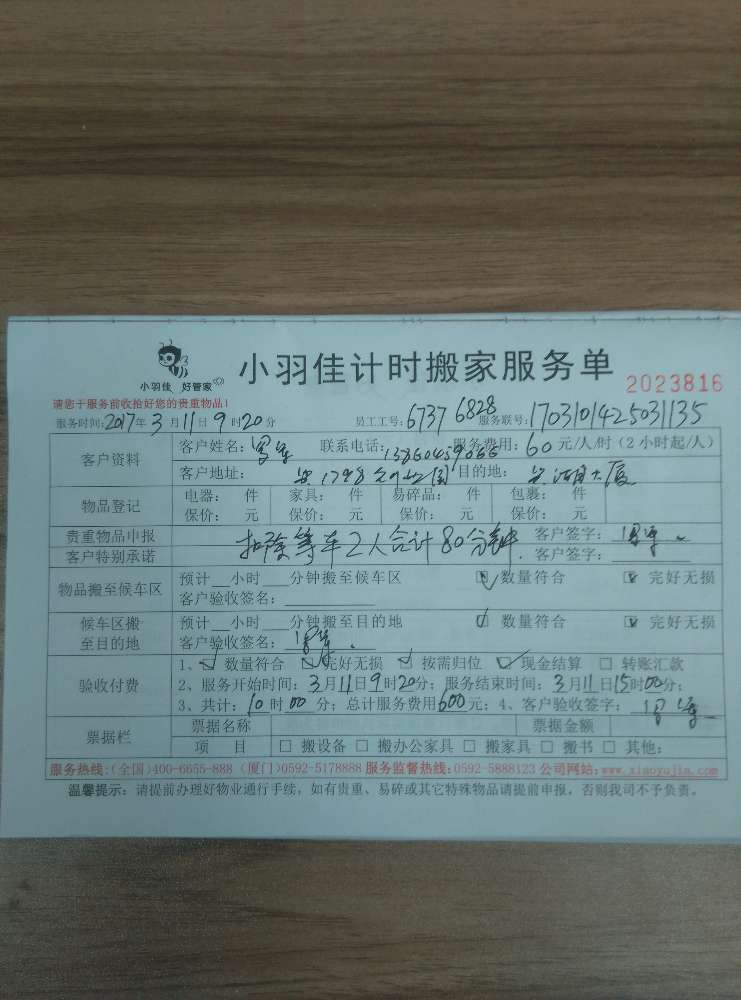 小羽佳 好管家
小羽佳计时搬家服务单
2023816
请您于服务前收拾好您的贵重物品!
服务时间:2017年3月11日9时20分 员工工号:6737 6828 服务联号:1703101425031135
客户资料
客户姓名: 联系电话: 服务费用:60元/人/时(2小时起/人)
客户地址: 目的地:
物品登记
电器: 件 家具: 件 易碎品: 件 包裹: 件
保价: 元 保价: 元 保价: 元 保价: 元
贵重物品申报
客户特别承诺
扣除等车2人合计80分钟.
客户签字:
客户签字:
物品搬至候车区
预计__小时__分钟搬至候车区 ☑ 数量符合 ☑ 完好无损
客户验收签名:
候车区搬
至目的地
预计__小时__分钟搬至目的地 ☑ 数量符合 ☑ 完好无损
客户验收签名:
验收付费
1、☑ 数量符合 ☑ 完好无损 ☑ 按需归位 ☑ 现金结算 □ 转账汇款
2、服务开始时间:3月11日9时20分;服务结束时间:3月11日15时00分;
3、共计:10时00分;总计服务费用600元;4、客户验收签字:
票据栏
票据名称 票据金额
项 目 □ 搬设备 □ 搬办公家具 □ 搬家具 □ 搬书 □ 其他:
服务热线:(全国)400-6655-888 (厦门)0592-5178888 服务监督热线:0592-5888123 公司网站:www.xiaoyujia.com
温馨提示:请提前办理好物业通行手续,如有贵重、易碎或其它特殊物品请提前申报,否则我司不予负责。